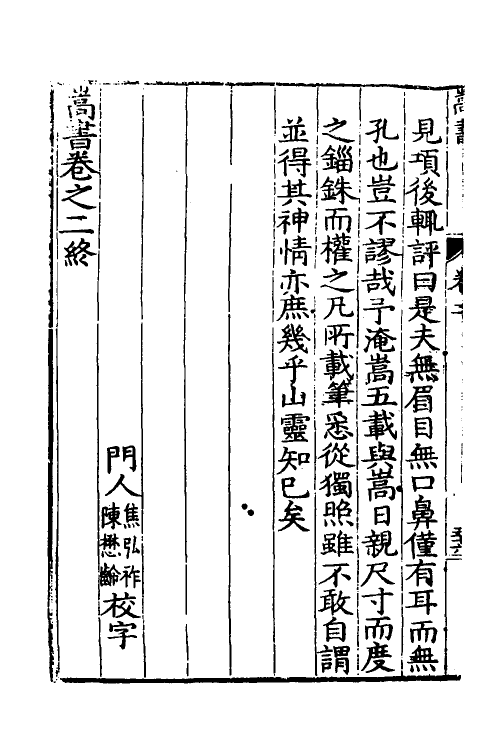 見項後輒評曰是夫無眉目無口鼻僅有耳而無
孔也豈不謬哉予淹嵩五載與嵩日親尺寸而度
之錙銖而權之凡所載筆悉從獨照雖不敢自謂
並得其神情亦庶幾乎山靈知已矣
門人焦弘祚陳懋齡校字
嵩書卷之二終